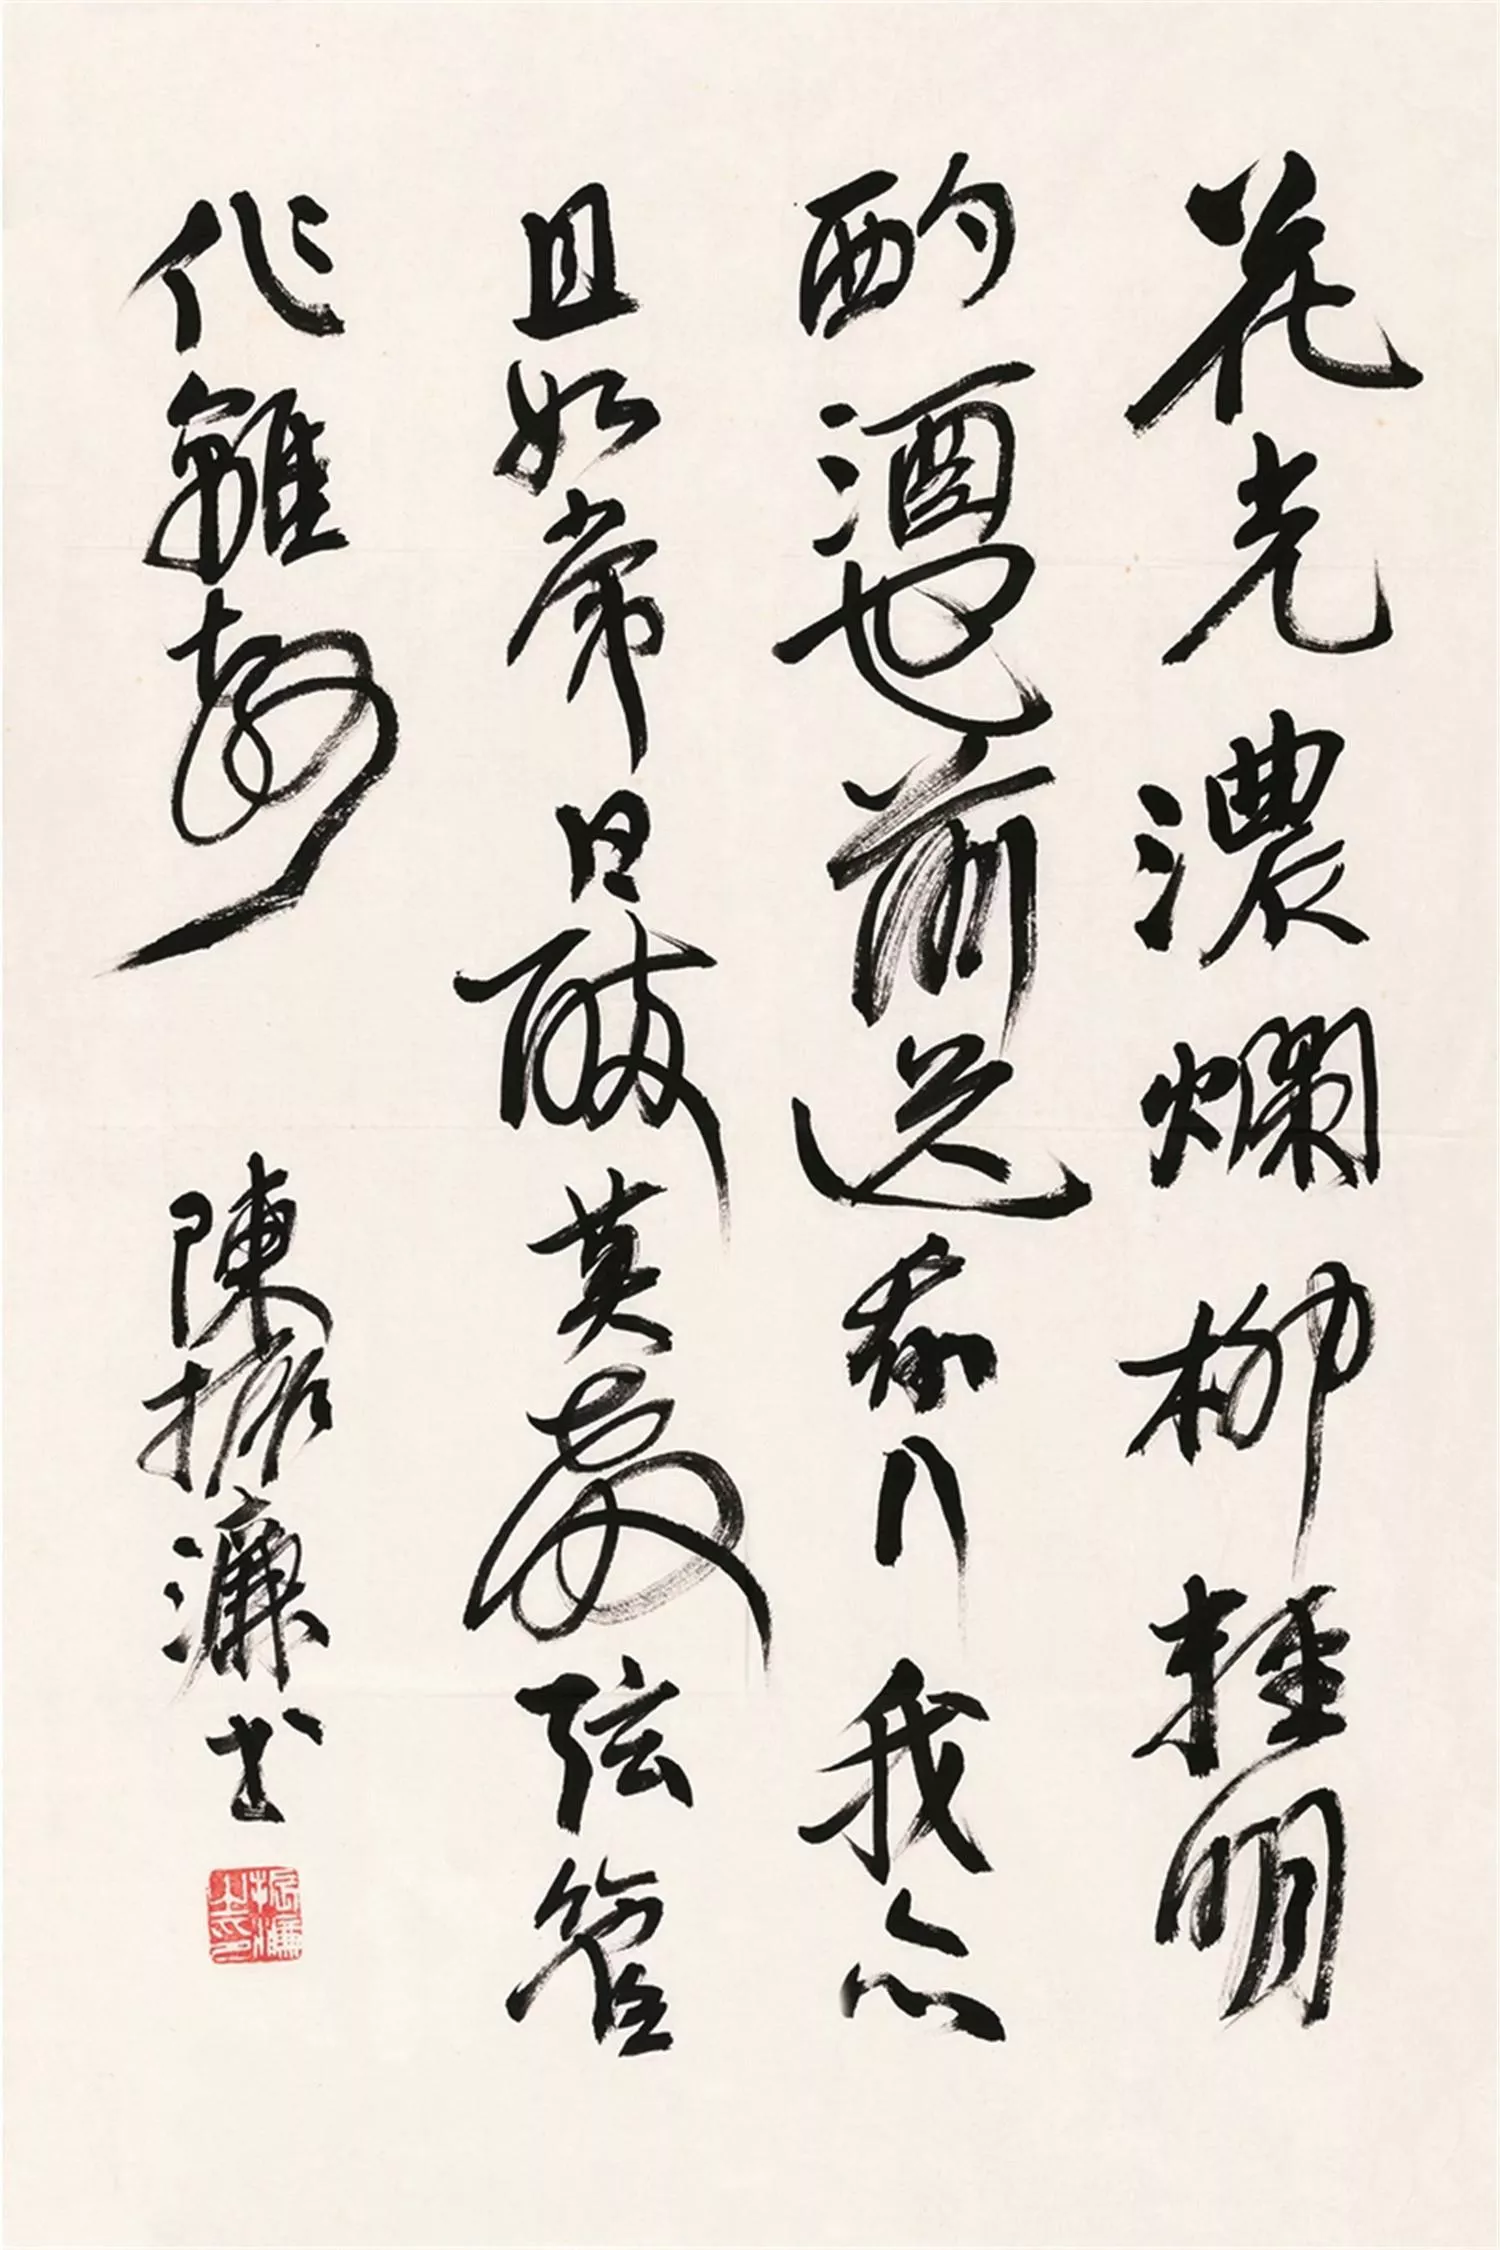 花光濃爛柳輕明
酌酒花前送我行我亦
且如常日醉莫教弦管
作離聲 陳振濂書
振濂之印